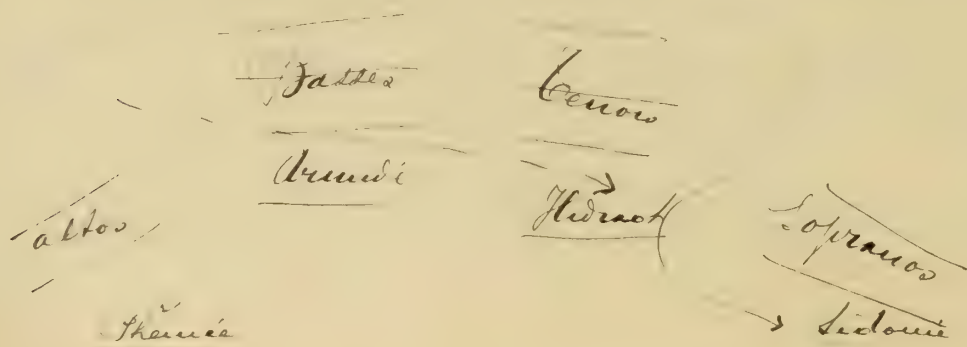 Basses
Tenors
Armide
Hidraot
altos
Sopranos
Phénice
Sidonie